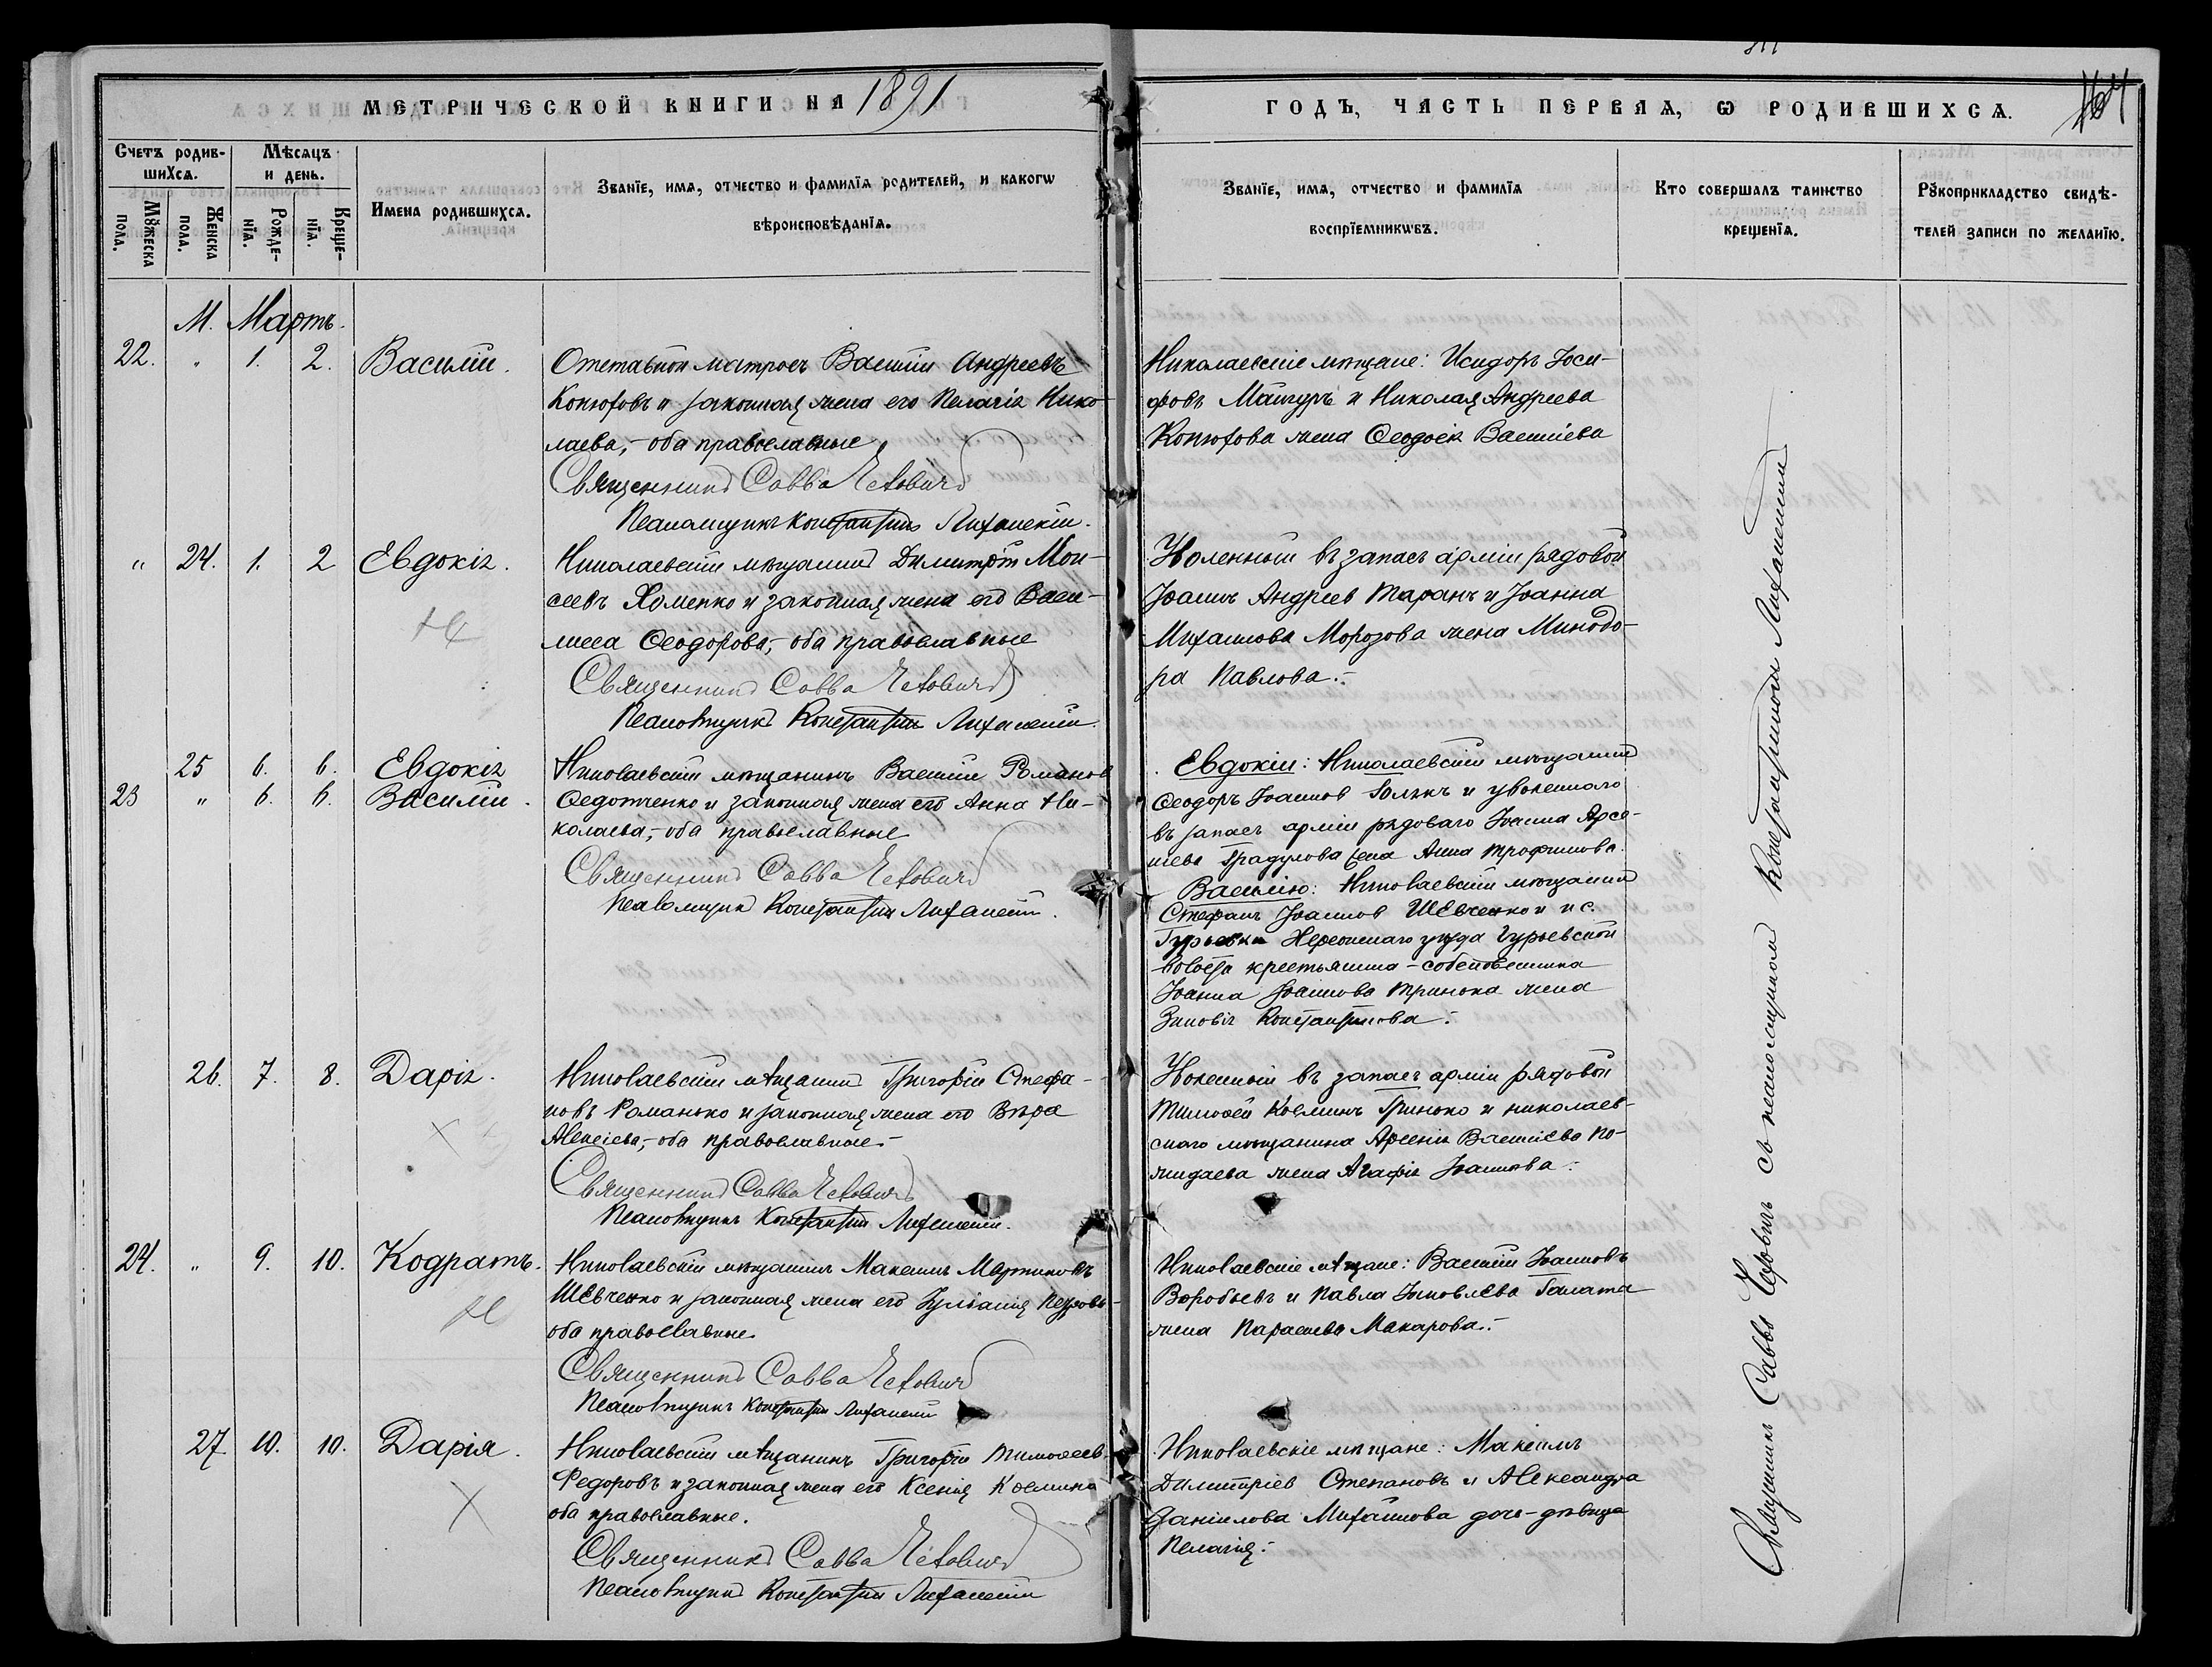 МЕТРИЧЕСКОЙ КНИГИ НА 1891
ГОДЪ, ЧАСТЬ ПЕРВАѦ, Ѡ РОДИВШИХСѦ.
164
Счетъ родив-
шихсѧ.
Мѣсѧцъ
и день.
Мꙋжеска
пола.
Женска
пола.
Рожде-
нїѧ.
Креще-
нїѧ.
Имена родившихсѧ.
Званїе, имѧ, отчество и фамилїѧ родителей, и какогѡ
вѣроисповѣданїѧ.
Званїе, имѧ, отчество и фамилїѧ
воспрїемникѡвъ.
Кто совершалъ таинство
крещенїѧ.
Рꙋкоприкладство свидѣ-
телей записи по желанїю.
М. Мартъ.
22. " 1. 2. Василій.
Отставной матросъ Василій Андреевъ
Конюховъ и законная жена его Пелагія Нико-
лаева, - оба православные
Священникъ Савва
Псаломщикъ Константинъ Лиханскій.
Николаевскіе мѣщане: Исидоръ Іоси-
фовъ и Николая Андреева
Конюхова жена Ѳеодосія Василіева
" 24. 1. 2 Евдокія.
Николаевскій мѣщанинъ Димитрій Мои-
сеевъ Хоменко и законная жена его Васи-
лисса Ѳеодорова, - оба православные
Священникъ Савва
Псаломщикъ Константинъ Лиханскій.
Уволенный въ запасъ арміи рядовой
Іоаннъ Андреев Таранъ и Іоанна
Михаилова Морозова жена Минодо-
ра Павлова.-
25 6. 6. Евдокія
23 " 6. 6. Василій.
Николаевскій мѣщанинъ Василій Романов
Ѳедотченко и законная жена его Анна Ни-
колаева, - оба православные
Священникъ Савва
Псаломщикъ Константинъ Лиханскій.
Евдокіи: Николаевскій мѣщанинъ
Ѳеодоръ Іоаннов и уволеннаго
въ запасъ арміи рядоваго Іоанна Арсе-
ніева Градулова жена Анна Трофимова.
Василію: Николаевскій мѣщанинъ
Стефанъ Іоаннов Шевченко и с.
Гурьевки Херсонскаго уѣзда Гурьевской
волости крестьянина - собственника
Іоанна Іоаннова Гринька жена
Зиновія Константинова.-
26. 7. 8. Дарія.
Николаевскій мѣщанинъ Григорій Стефа-
новъ Романько и законная жена его Вѣра
Алексіева, - оба православные.-
Священникъ Савва
Псаломщикъ Константинъ Лиханскій.
Уволенный въ запасъ арміи рядовой
Тимоѳей Косминъ Гринько и николаев-
скаго мѣщанина Арсенія Василіева По-
жидаева жена Агафія Іоаннова.-
24. " 9. 10. Кодратъ.
Николаевскій мѣщанинъ Максимъ Мартиновъ
Шевченко и законная жена его Іуліанія Петрова-
оба православные
Священникъ Савва
Псаломщикъ Константинъ Лиханскій
Николаевскіе мѣщане: Василій Іоанновъ
Воробьевъ и Павла Іаковлева Галата
жена Параскева Макарова.-
27 10. 10. Дарія.
Николаевскій мѣщанинъ Григорій Тимоѳеев
Федоровъ и законная жена его Ксенія Космина
оба православные.
Священникъ Савва
Псаломщикъ Константинъ Лиханскій
Николаевскіе мѣщане: Максимъ
Димитріев Степановъ и Александра
Даніилова Михайлова дочь - дѣвица
Пелагія.-
Священникъ Савва съ псаломщикомъ Константиномъ Лиханскимъ